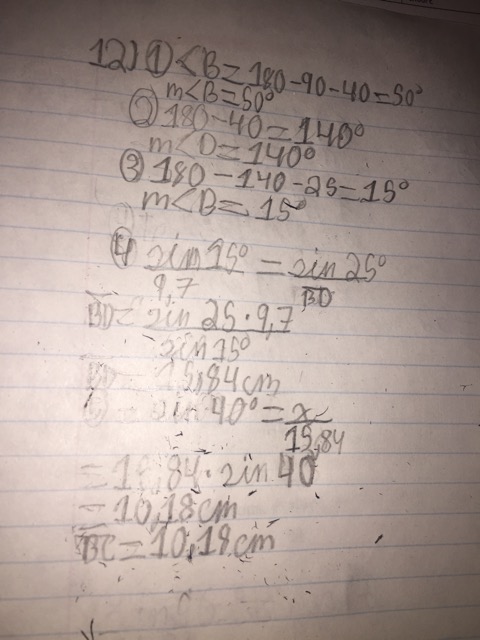 12) ① <B=180-90-40=50°
m<B=50°
② 180-40=140°
m<D=140°
③ 180-140-25=15°
m<D=15°
④ sin 15° = sin 25°
9,7 BD
BD= sin 25·9,7
sin 15°
15,84cm
sin 40° = x
15,84
= 15,84·sin 40
= 10,18cm
BC=10,18cm